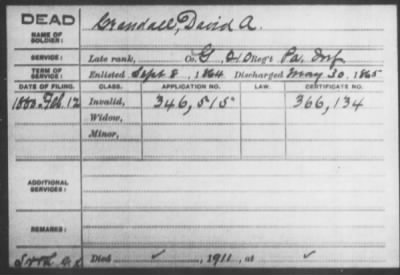 DEAD
NAME OF SOLDIER: Crandall, David A.
SERVICE: Late rank, Co. G, Reg't Pa. Inf
TERM OF SERVICE: Enlisted Sept. 8, 1864 Discharged May 30, 1865
DATE OF FILING. CLASS. APPLICATION NO. LAW. CERTIFICATE NO.
1880 Feb. 12 Invalid, 346,515 366,134
Widow,
Minor,
ADDITIONAL SERVICES:
REMARKS:
Died ✓, 1911, at ✓